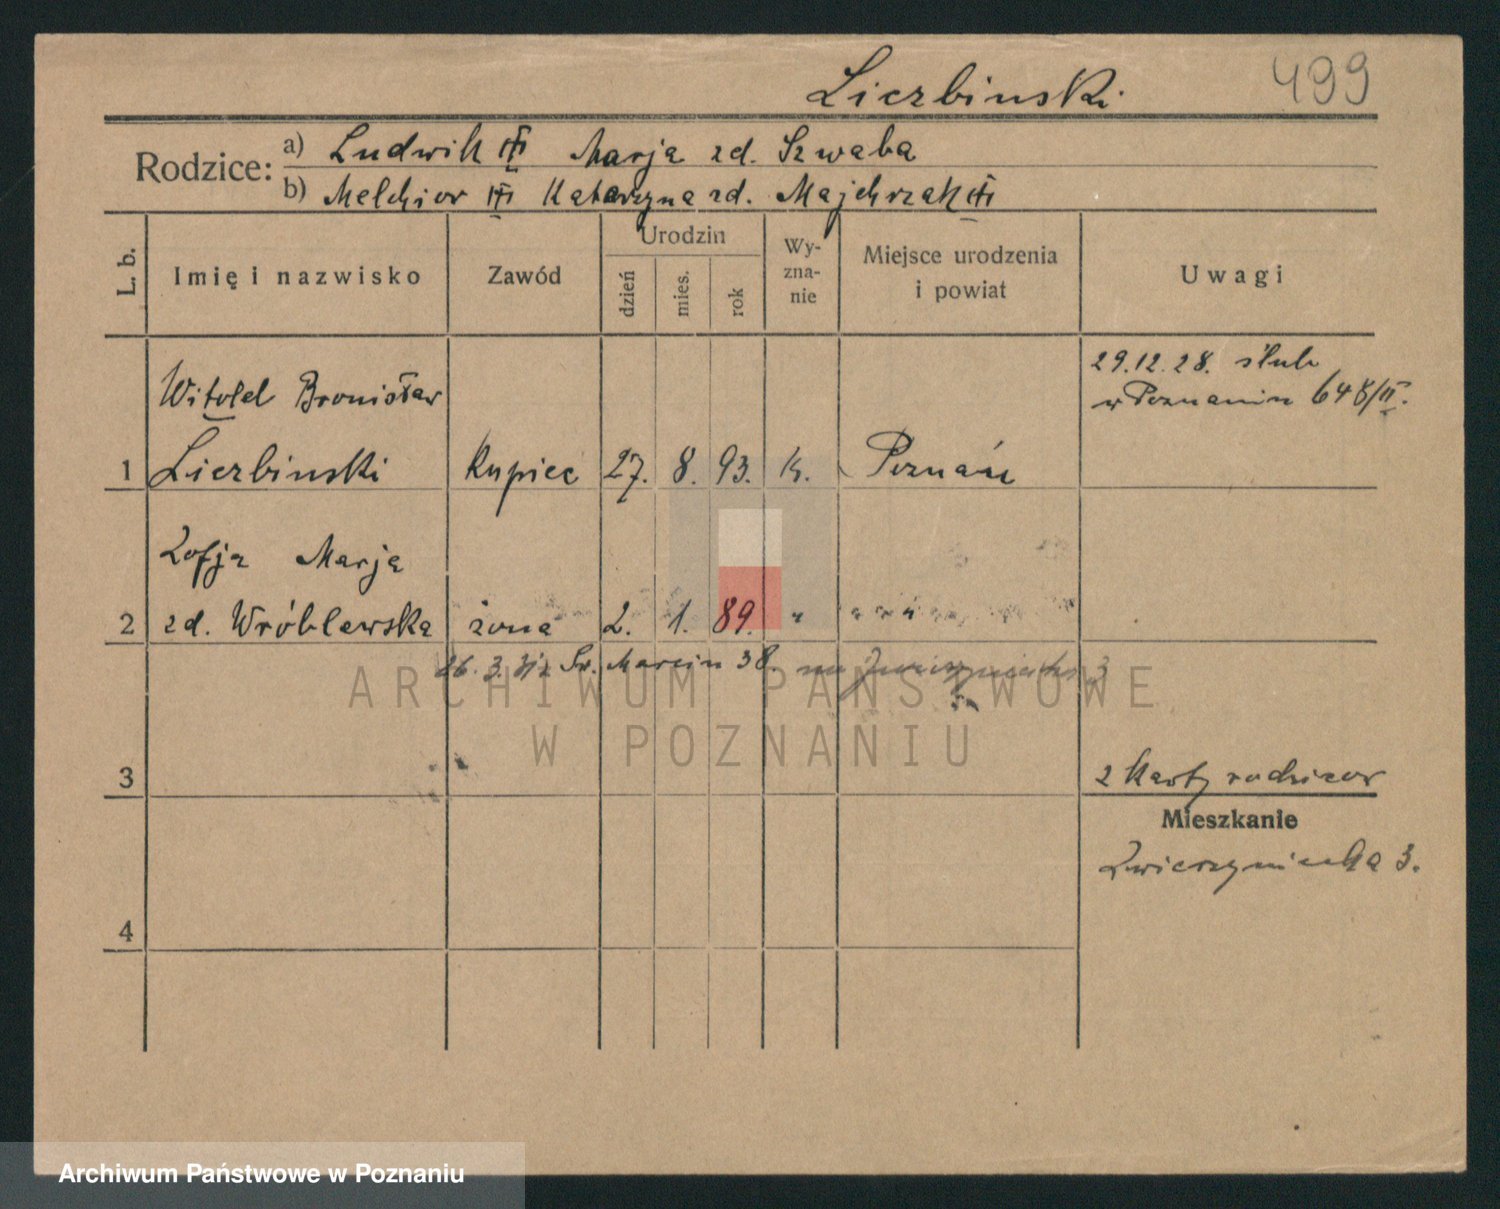 Liczbinski
499
Rodzice:
a) Ludwik Marja zd. Szwaba
b) Melchior Katarzyna zd. Majchrzak
L. b.
Imię i nazwisko
Zawód
Urodzin
dzień
mies.
rok
Wy-
zna-
nie
Miejsce urodzenia
i powiat
Uwagi
29.12.28. ślub
w Poznaniu 648/II.
Witold Bronisław
1 Liczbinski kupiec 27. 8. 93. k. Poznań
Zofja Marja
2 zd. Wróblewska żona 2. 1. 89. " "
26. 3. 31 z Św. Marcin 38. na 3
ARCHIWUM PAŃSTWOWE
W POZNANIU
3
2 karty rodziców
Mieszkanie
Zwierzyniecka 3.
4
Archiwum Państwowe w Poznaniu